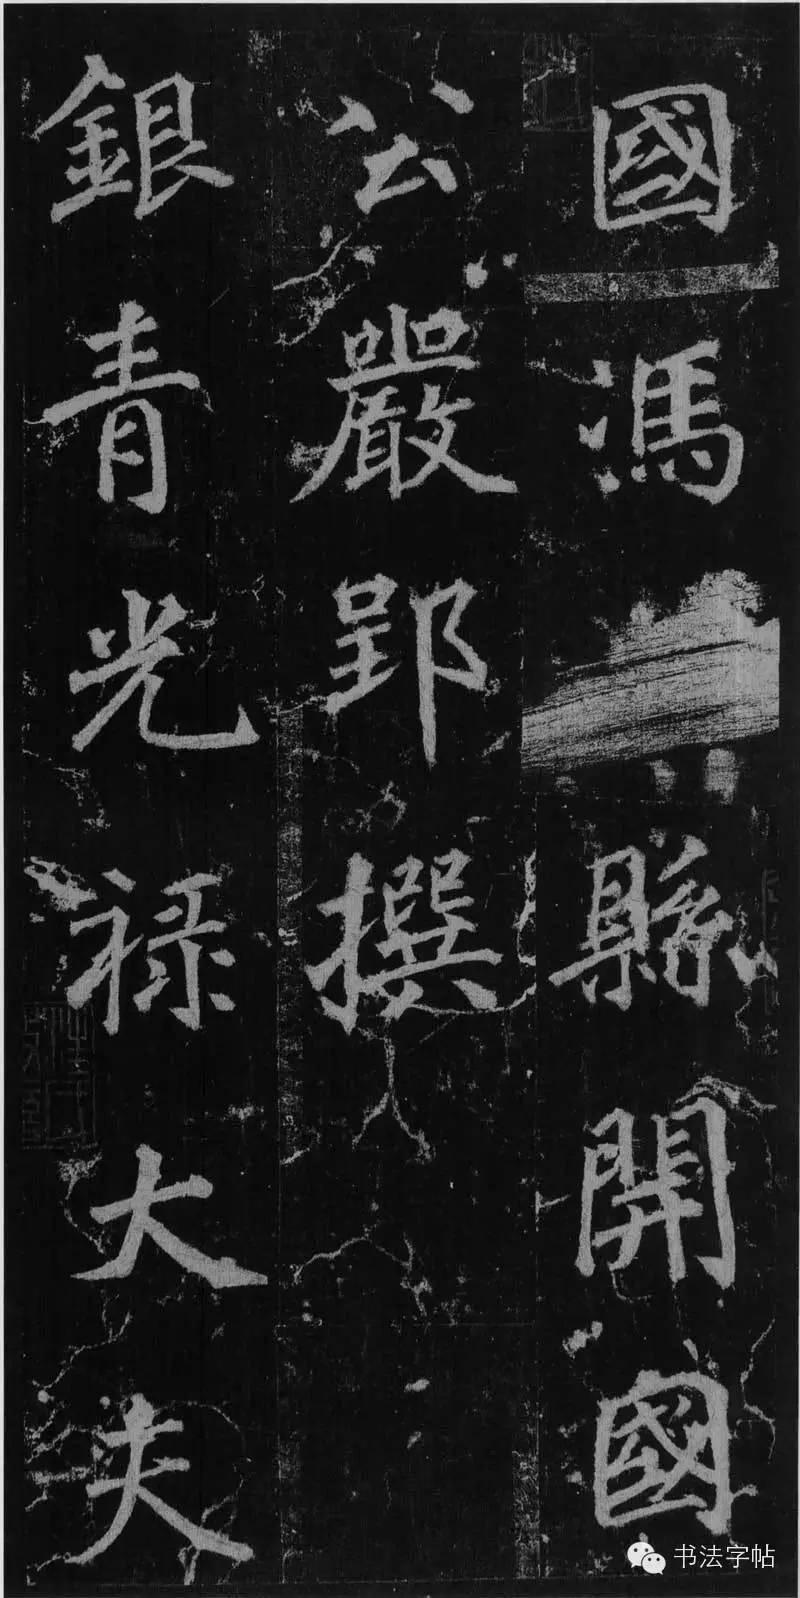 國馮縣開國
公嚴郢撰
銀青光禄大夫
书法字帖